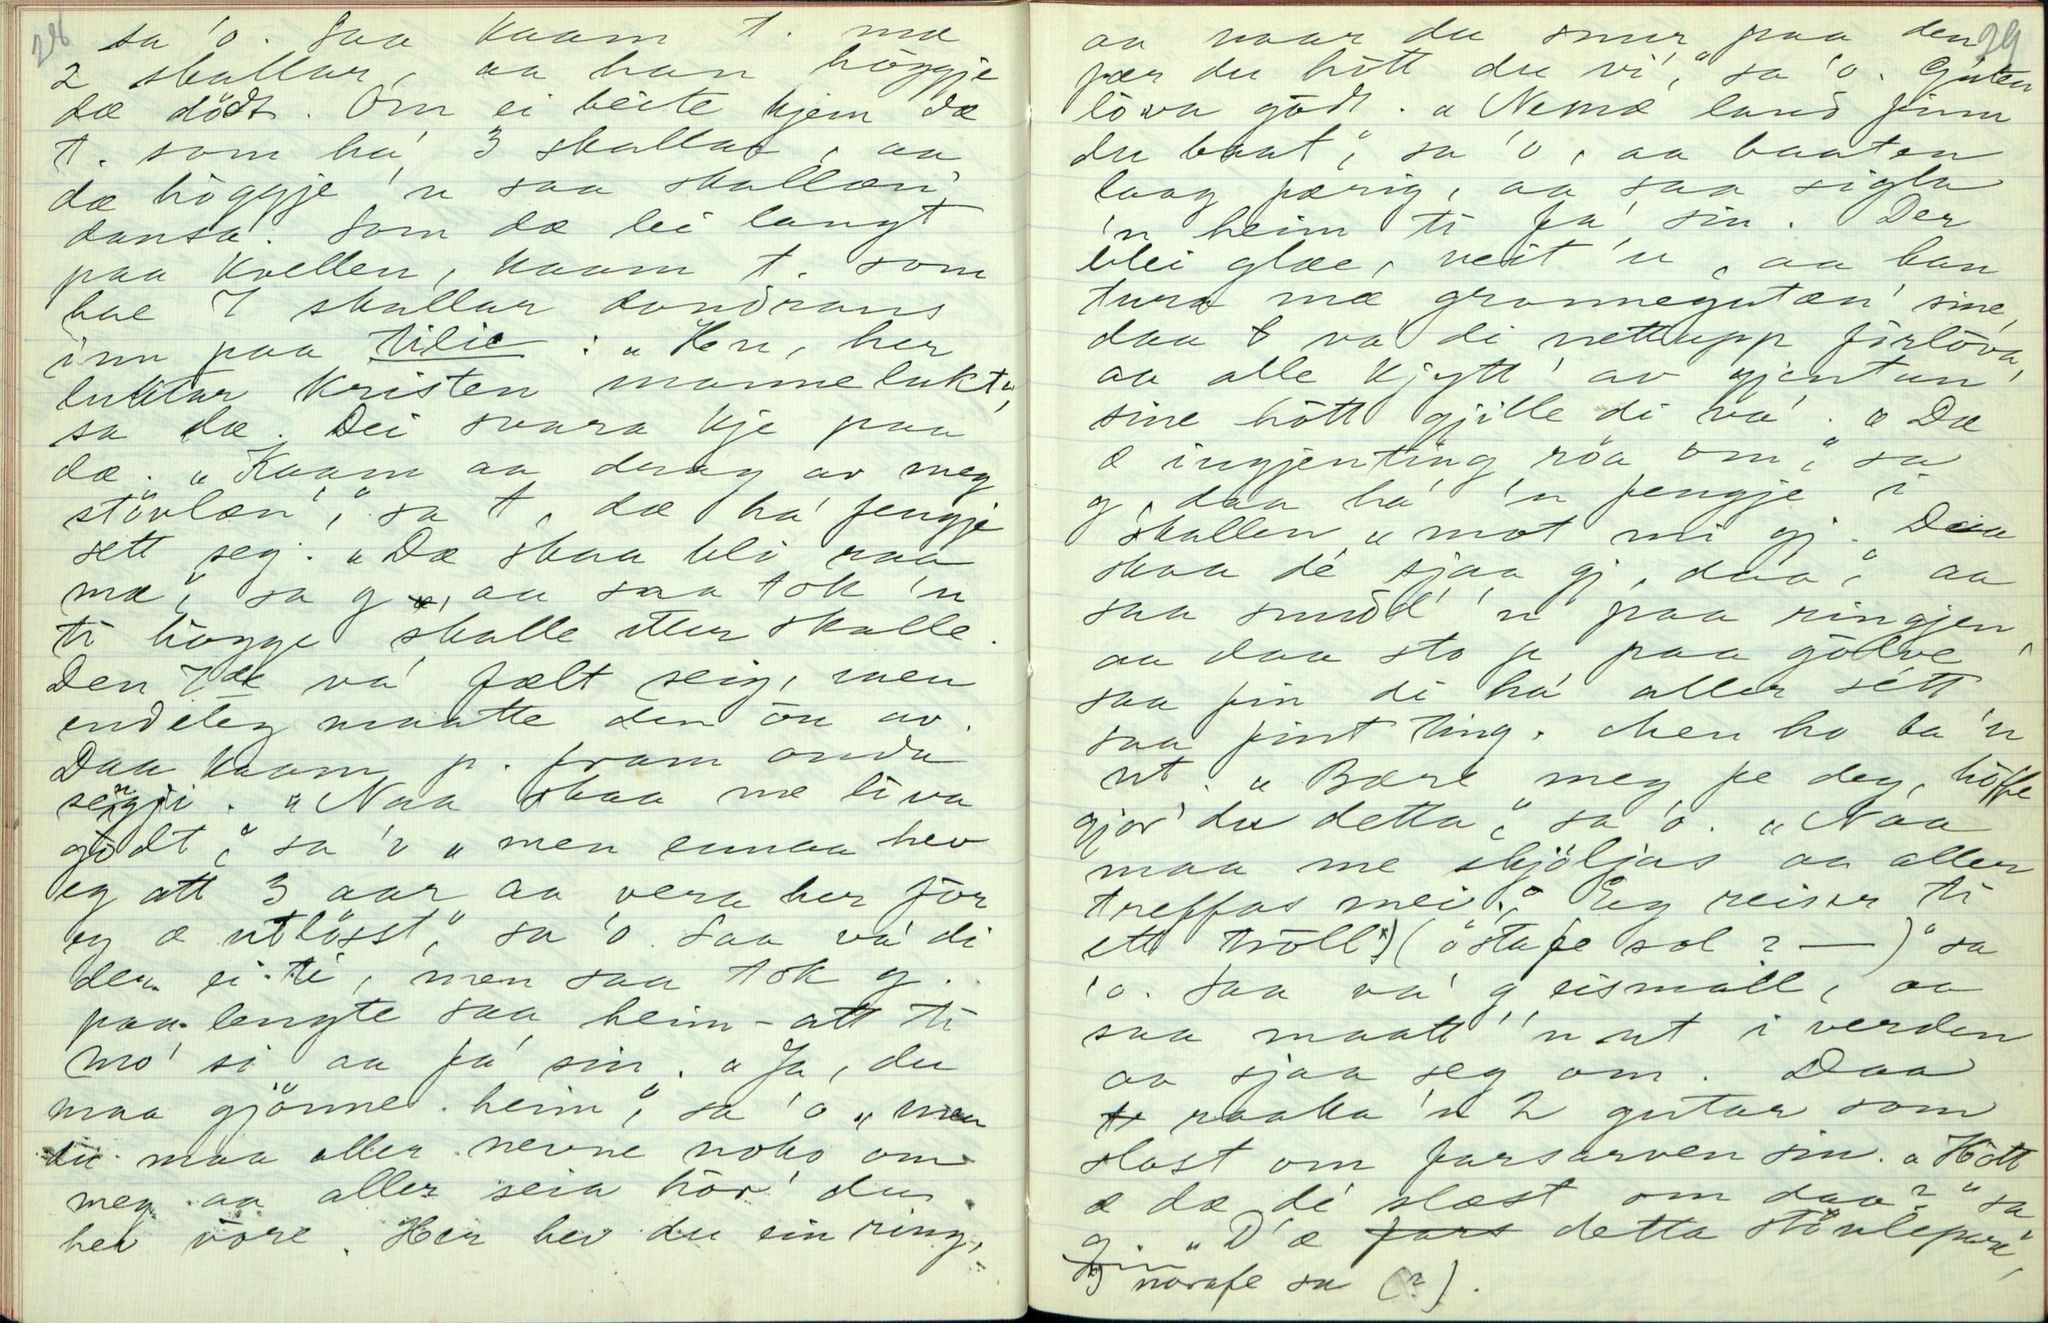 28
sa 'o. Saa kaam t. mæ
2 skallar, aa han höggje
dæ dödt. Om ei beite kjem dæ
t. som há 3 skallar, aa
dæ höggje 'n saa skallæn'
dansa. Som dæ lei langt
paa kvellen, kaam t. som
hae 7 skallar dondrans
inn paa tilie: "Hu, her
luktar kristen mannelukt",
sa dæ. Dei svara kje paa
dæ. "Kaam aa drag av meg
stövlæn'," sa t, dæ há fengje
sett seg. "Dæ skaa bli raa
mæ," sa g, aa saa tok 'n
ti högge skalle etter skalle.
Den 7de vá fælt seig, men
endeleg maatte den öu av.
Daa kaam p. fram onda
sengji. "Naa skaa me liva
godt," sa 'o "men ennaa hev
eg att 3 aar aa vera her för
eg æ utlösst," sa 'o. Saa vá di
der ei ti, men saa tok g.
paa lengte saa heim-att ti
mo' si aa fá sin. "Ja, du
maa gjönne heim," sa 'o "men
du maa aller nevne noko om
meg aa aller seia hör' du
hev vore. Her hev du ein ring,
29
aa naar du snur paa den
fær du hött du vi," sa 'o. Guten
lova godt. "Nemæ land finn
du baat," sa 'o, aa baaten
laag færig, aa saa sigla
'n heim ti fá sin. Der
blei glæe, veit 'n, aa han
tura mæ grannegutæn' sine,
daa vá di nettupp forlova,
aa alle kjytt' av gjentun'
sine hött gjille di vá. "Dæ
æ ingjenting röa om," sa
g, daa há 'n fengje i
skallen "mot mi gj. Daa
skaa dé sjaa gj, daa," aa
saa snudd' 'n paa ringjen,
aa daa sto p paa gölve
saa fin di há aller sett
saa fint ting. Men ho ba 'n
ut. "Bære meg fe deg, höffe
gjor' du detta," sa 'o. "Naa
maa me skjöljas aa aller
treffas mei." Eg reiser ti
ett tröll x) (östafe sol ? —)" sa
'o. Saa vá g eismall, aa
saa maatt' 'n ut i verden
aa sjaa seg om. Daa
raaka 'n 2 gutar som
slost om farsarven sin. "Hött
æ dæ dé slæst om daa?" sa
g. "D'æ detta stövlepare,
x) norafe sa (?).